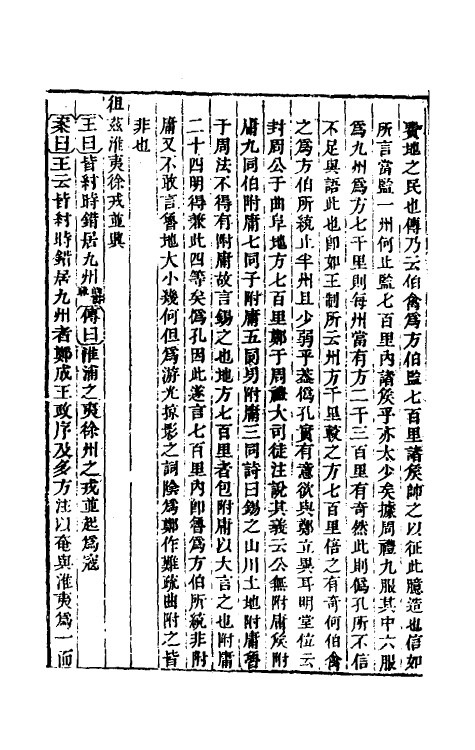 費地之民也傳乃云伯禽為方伯監七百里諸矦帥之以征此臆造也信如
所言當監一州何止監七百里內諸矦乎亦太少矣據周禮九服其中六服
為九州為方七千里則每州當有方二千三百里有奇然此則偽孔所不信
不足與語此也卽如王制所云州方千里較之方七百里倍之有奇何伯禽
之為方伯所統止半州且少弱乎葢偽孔實有意欲與鄭立異耳明堂位云
封周公于曲阜地方七百里鄭于周禮大司徒注說其義云公無附庸矦附
庸九同伯附庸七同子附庸五同男附庸三同詩曰錫之山川土地附庸魯
于周法不得有附庸故言錫之也地方七百里者包附庸以大言之也附庸
二十四明得兼此四等矣偽孔因此遂言七百里內卽魯為方伯所統非附
庸又不敢言魯地大小幾何但為游光掠影之詞陰為鄭作難疏曲附之皆
非也
徂茲淮夷徐戎並興
王曰皆紂時錯居九州 傳曰淮浦之夷徐州之戎並起為寇
案曰王云皆紂時錯居九州者鄭成王政序及多方注以奄與淮夷為一而